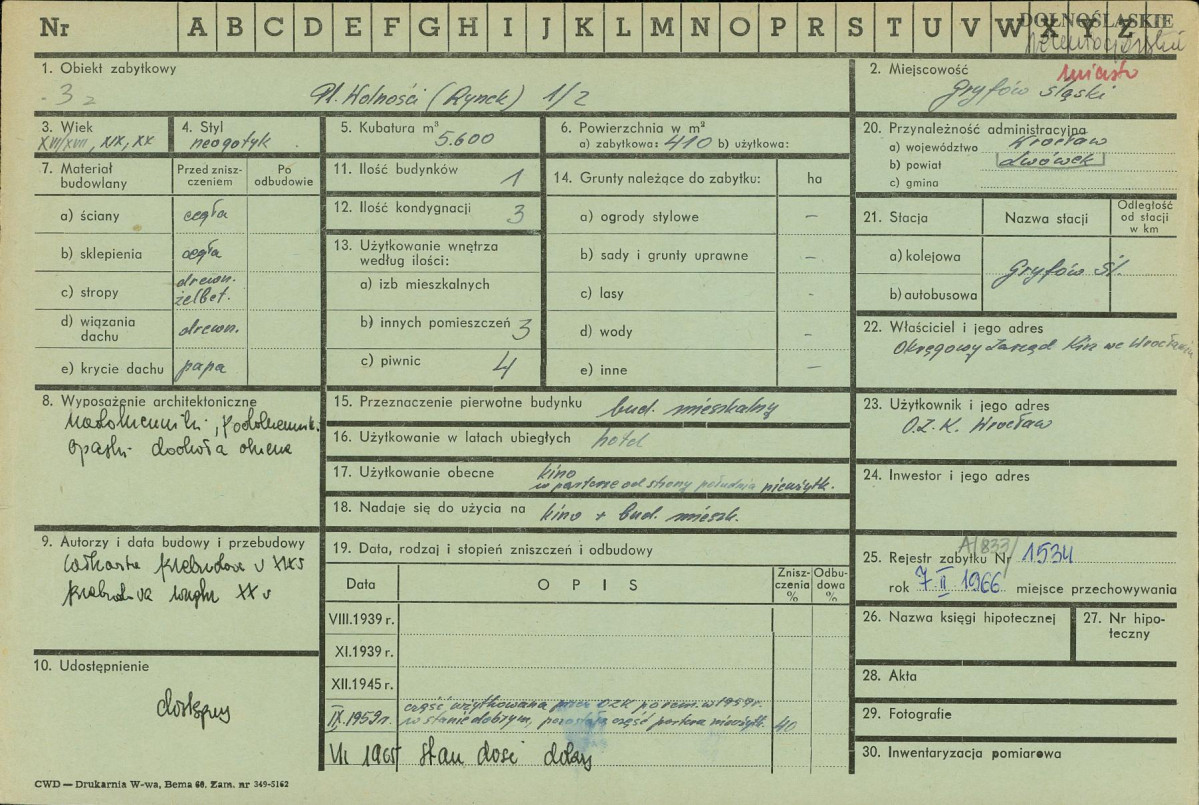 Nr A B C D E F G H I J K L M N O P R S T U V W X Y Z
DOLNOŚLĄSKIE
1. Obiekt zabytkowy
3
Pl. Wolności (Rynek) 1/2
2. Miejscowość
miasto
Gryfów Śląski
3. Wiek
XVI/XVII, XIX, XX
4. Styl
neogotyk
5. Kubatura m³
5.600
6. Powierzchnia w m²
a) zabytkowa: 410 b) użytkowa:
7. Materiał budowlany
Przed znisz-
czeniem
Po
odbudowie
a) ściany cegła
b) sklepienia cegła
c) stropy drewn.
żelbet.
d) wiązania
dachu drewn.
e) krycie dachu papa
8. Wyposażenie architektoniczne
opaski dookoła okienne
9. Autorzy i data budowy i przebudowy
całkowita przebudowa w XIX w
przebudowa wnętrz XX w
10. Udostępnienie
dostępny
11. Ilość budynków 1
12. Ilość kondygnacji 3
13. Użytkowanie wnętrza
według ilości:
a) izb mieszkalnych
b) innych pomieszczeń 3
c) piwnic 4
14. Grunty należące do zabytku: ha
a) ogrody stylowe –
b) sady i grunty uprawne –
c) lasy -
d) wody –
e) inne –
15. Przeznaczenie pierwotne budynku bud. mieszkalny
16. Użytkowanie w latach ubiegłych hotel
17. Użytkowanie obecne kino
w parterze od strony południa nieużytk.
18. Nadaje się do użycia na kino + bud. mieszk.
19. Data, rodzaj i stopień zniszczeń i odbudowy
Data OPIS Znisz-
czenia
% Odbu-
dowa
%
VIII.1939 r.
XI.1939 r.
XII.1945 r.
IX.1959r. część użytkowana przez OZK po rem. w 1959r.
w stanie dobrym, pozostała część parteru nieużytk. 40
VII 1965 stan dość dobry
20. Przynależność administracyjna
a) województwo Wrocław
b) powiat Lwówek
c) gmina
21. Stacja Nazwa stacji Odległość
od stacji
w km
a) kolejowa
Gryfów Śl.
b) autobusowa
22. Właściciel i jego adres
Okręgowy Zarząd Kin we Wrocławiu
23. Użytkownik i jego adres
O.Z.K. Wrocław
24. Inwestor i jego adres
25. Rejestr zabytku Nr A/833/ 1534
rok 7 II 1966 miejsce przechowywania
26. Nazwa księgi hipotecznej
27. Nr hipo-
teczny
28. Akta
29. Fotografie
30. Inwentaryzacja pomiarowa
CWD — Drukarnia W-wa, Bema 60. Zam. nr 349-5162